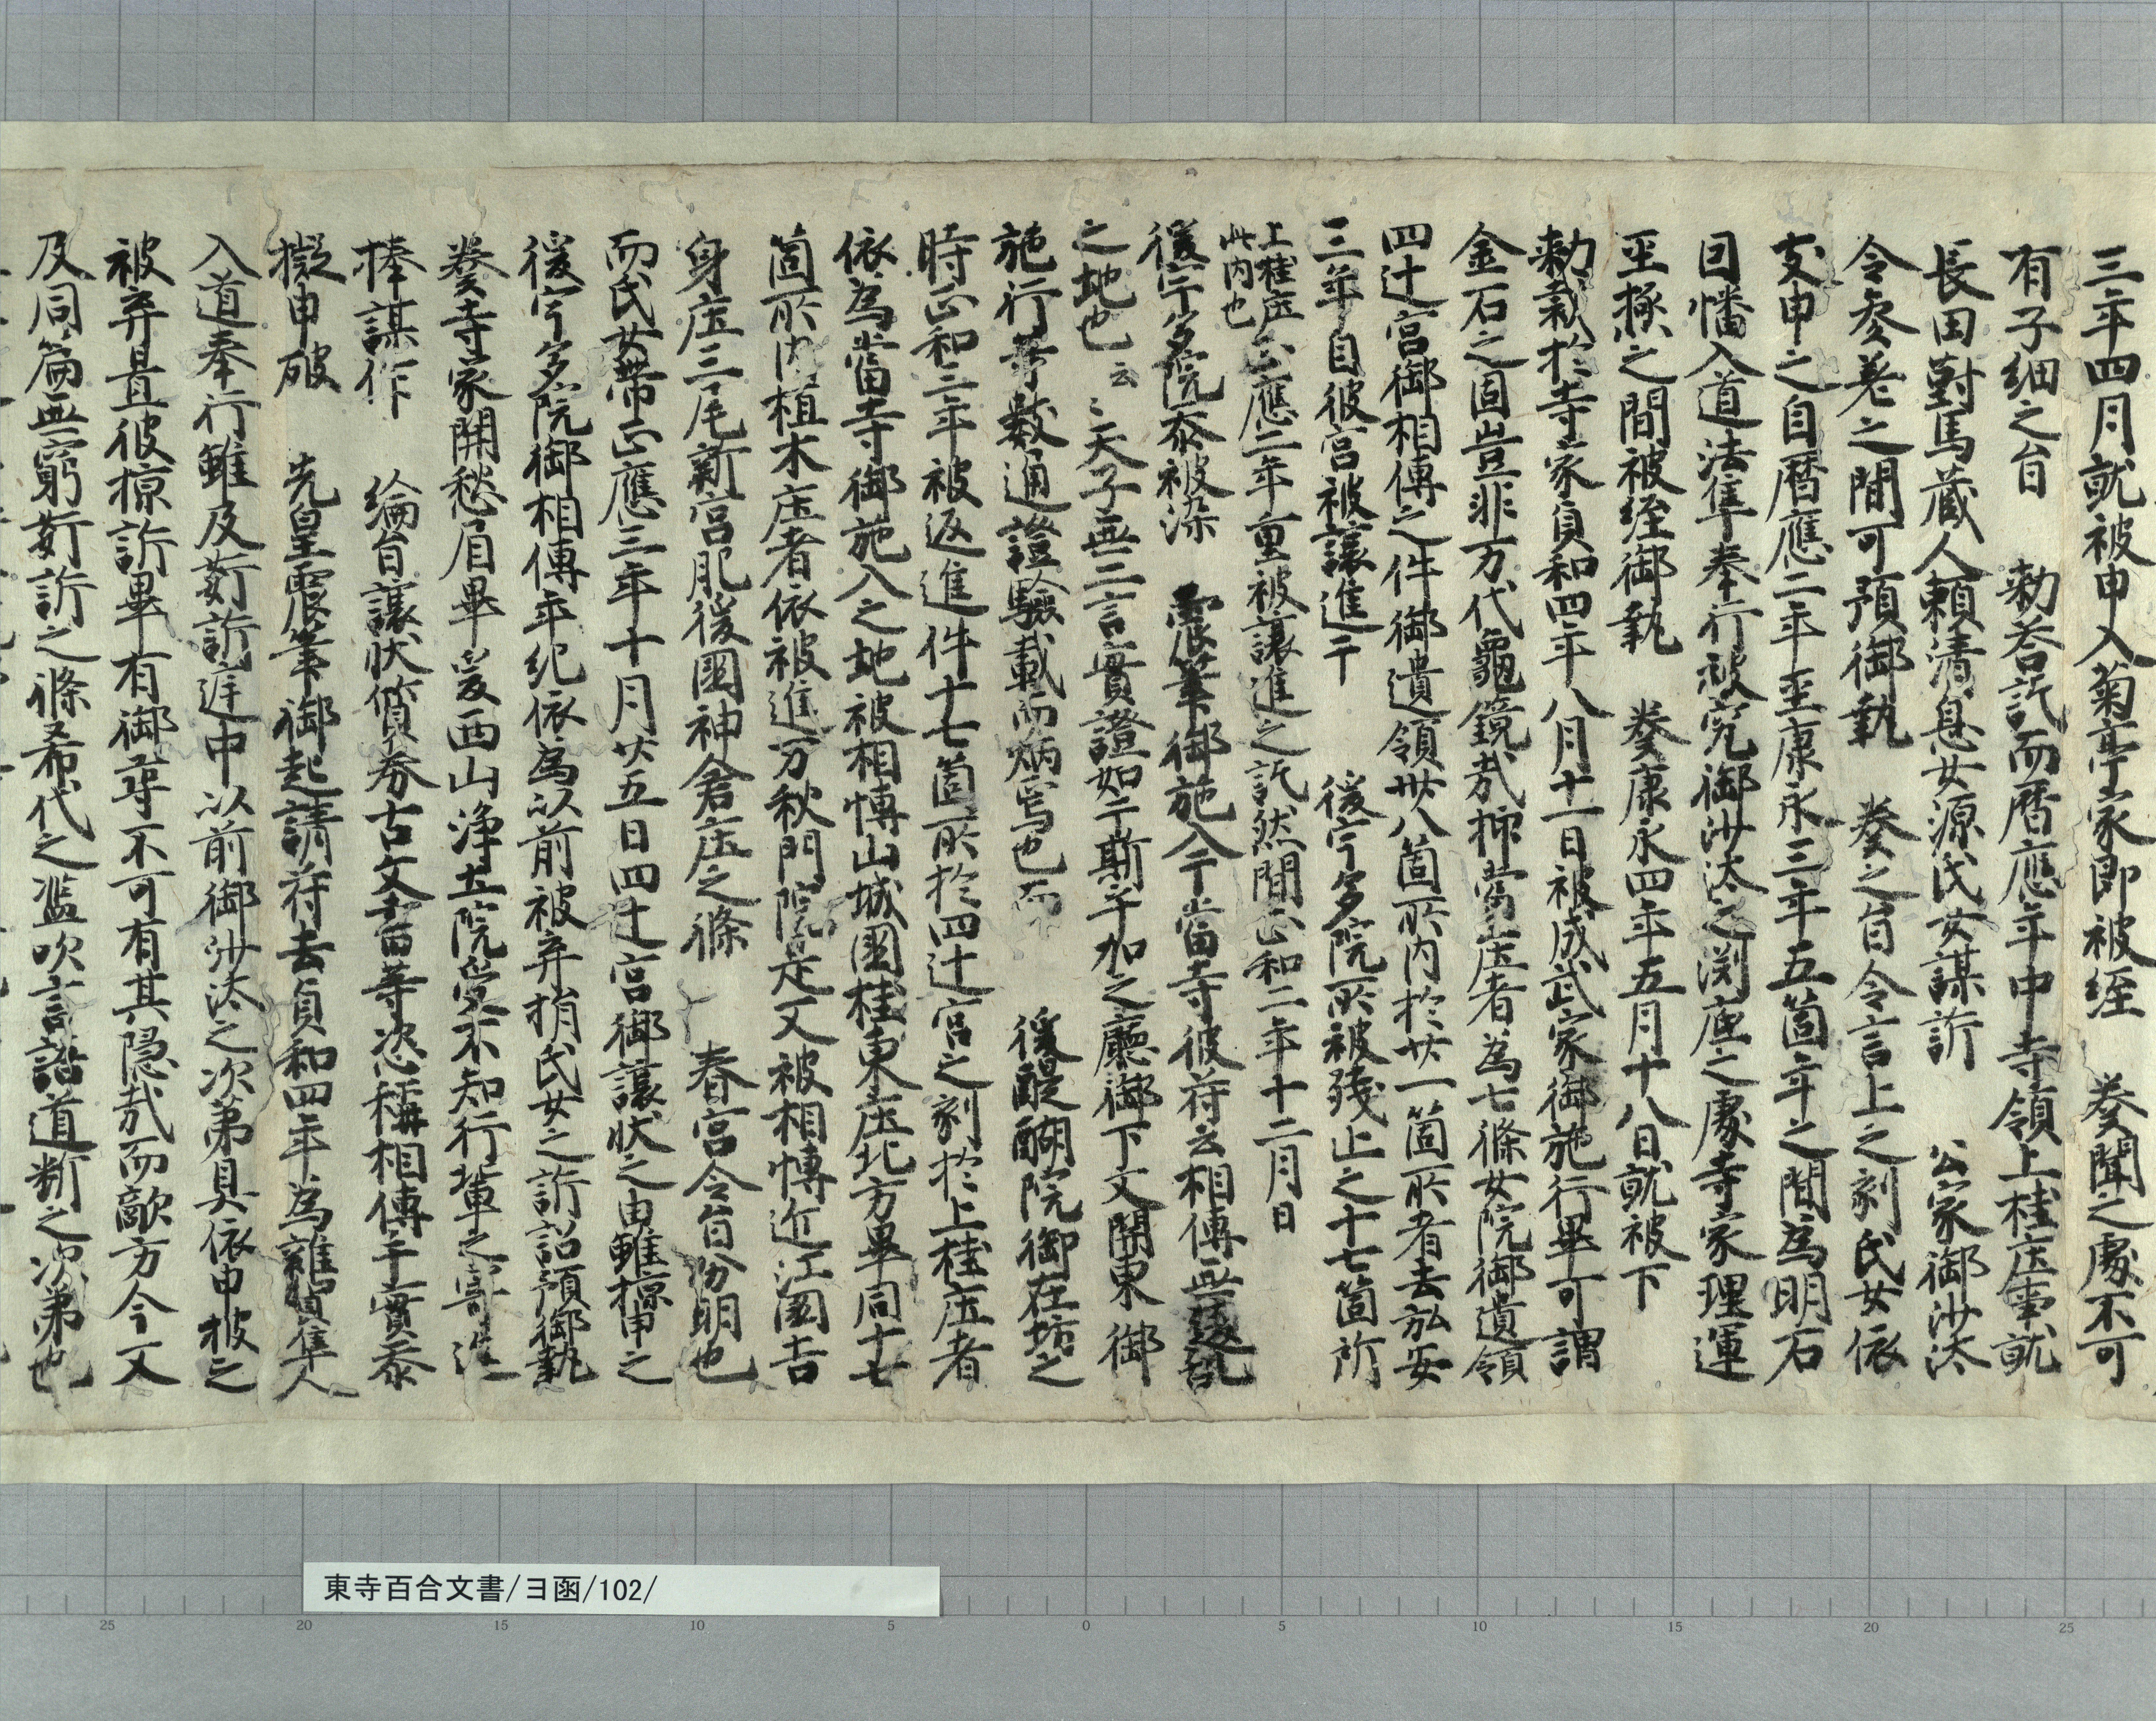 三年四月就被申入菊亭家即被経　奏聞之處不可
有子細之旨　勅答訖而暦應年中寺領上桂庄事就
長田對馬蔵人頼清息女源氏女謀訴　公家御沙汰
令参差之間可預御執　奏之旨令言上之刻氏女依
支申之自暦應二年至康永三年五箇年之間為明石
因幡入道法隼奉行被究御沙汰之渕底之處寺家理運
至極之間被経御執　奏康永四年五月十八日就被下
勅裁於寺家貞和四年八月十一日被成武家御施行畢可謂
金石之固豈非万代龜鏡哉抑當庄者為七條女院御遺領
四辻宮御相傳之件御遺領卅八箇所内於廿一箇所者去弘安
三年自彼宮被譲進于　後宇多院所被残止之十七箇所
上桂庄此内也正應二年重被譲進之訖然間正和二年十二月日
後宇多院忝被染　震筆御施入于當寺彼符云相傳無
之地也云々天子無二言實證如于斯乎加之廳御下文關東御
施行等数通證驗載而炳焉也而　後醍醐院御在坊之
時正和三年被返進件十七箇所於四辻宮之刻於上桂庄者
依為當寺御施入之地被相博山城國桂東庄北方畢同十七
箇所内植木庄者依被進万秋門院是又被相博近江國吉
身庄三尾新宮肥後國神倉庄之條　春宮令旨分明也
而氏女帯正應三年十月廿五日四辻宮御譲状之由雖掠申之
後宇多院御相傳年紀依為以前被弃捐氏女之訴詔預御執
奏寺家開愁眉畢爰西山浄土院受不知行輩之寄進
捧謀作　綸旨譲状質券古文書等恣稱相傳于實忝
擬申破　先皇震筆御起請符去貞和四年為雜賀隼人
入道奉行雖及嗷訴違申以前御沙汰之次第具依申披之
被弃置彼掠訴畢有御尋不可有其隠哉而敵方今又
及同篇無窮嗷訴之條希代之濫吹言語道断之次第也
東寺百合文書/ヨ函/102/
25
20
15
10
5
0
5
10
15
20
25